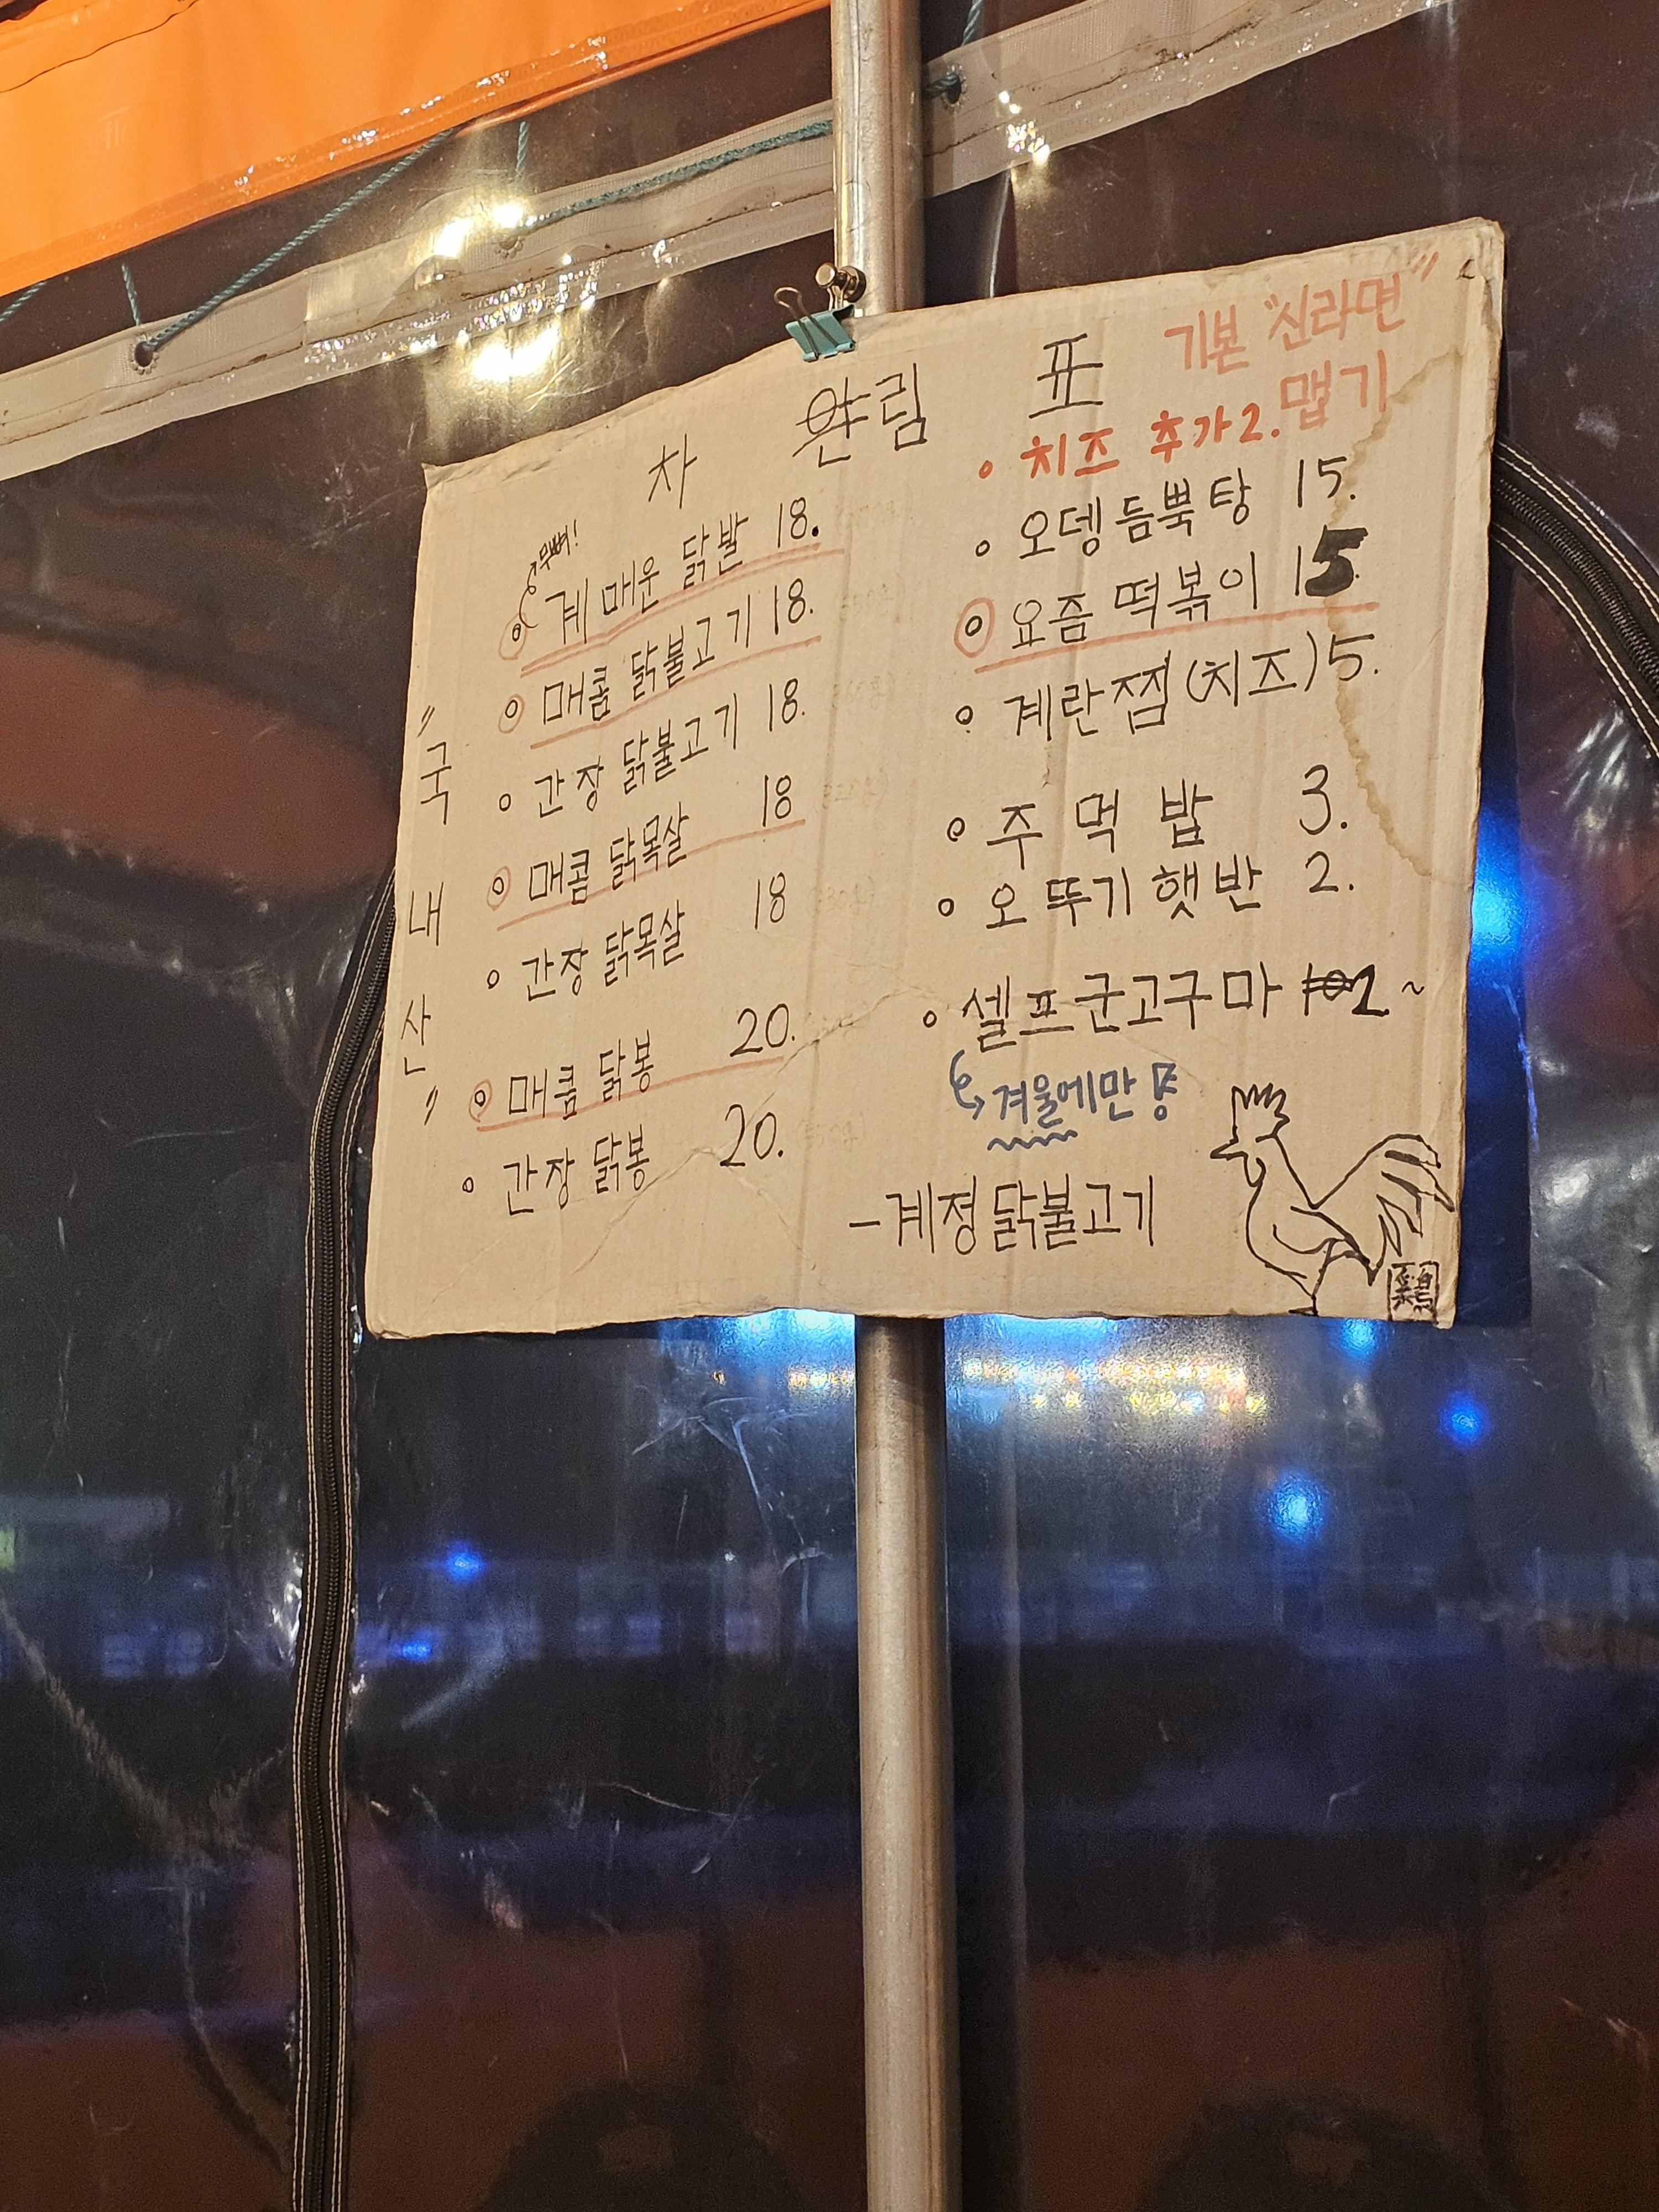 차 림 표
기본 "신라면"
맵기
무뼈!
계 매운 닭발 18.
매콤 닭불고기 18.
간장 닭불고기 18.
매콤 닭목살 18
간장 닭목살 18
매콤 닭봉 20.
간장 닭봉 20.
"국내산"
치즈 추가 2.
오뎅듬뿍탕 15.
요즘 떡볶이 15.
계란찜(치즈) 5.
주먹밥 3.
오뚜기 햇반 2.
셀프군고구마 2~
겨울에만
-계정닭불고기
鷄